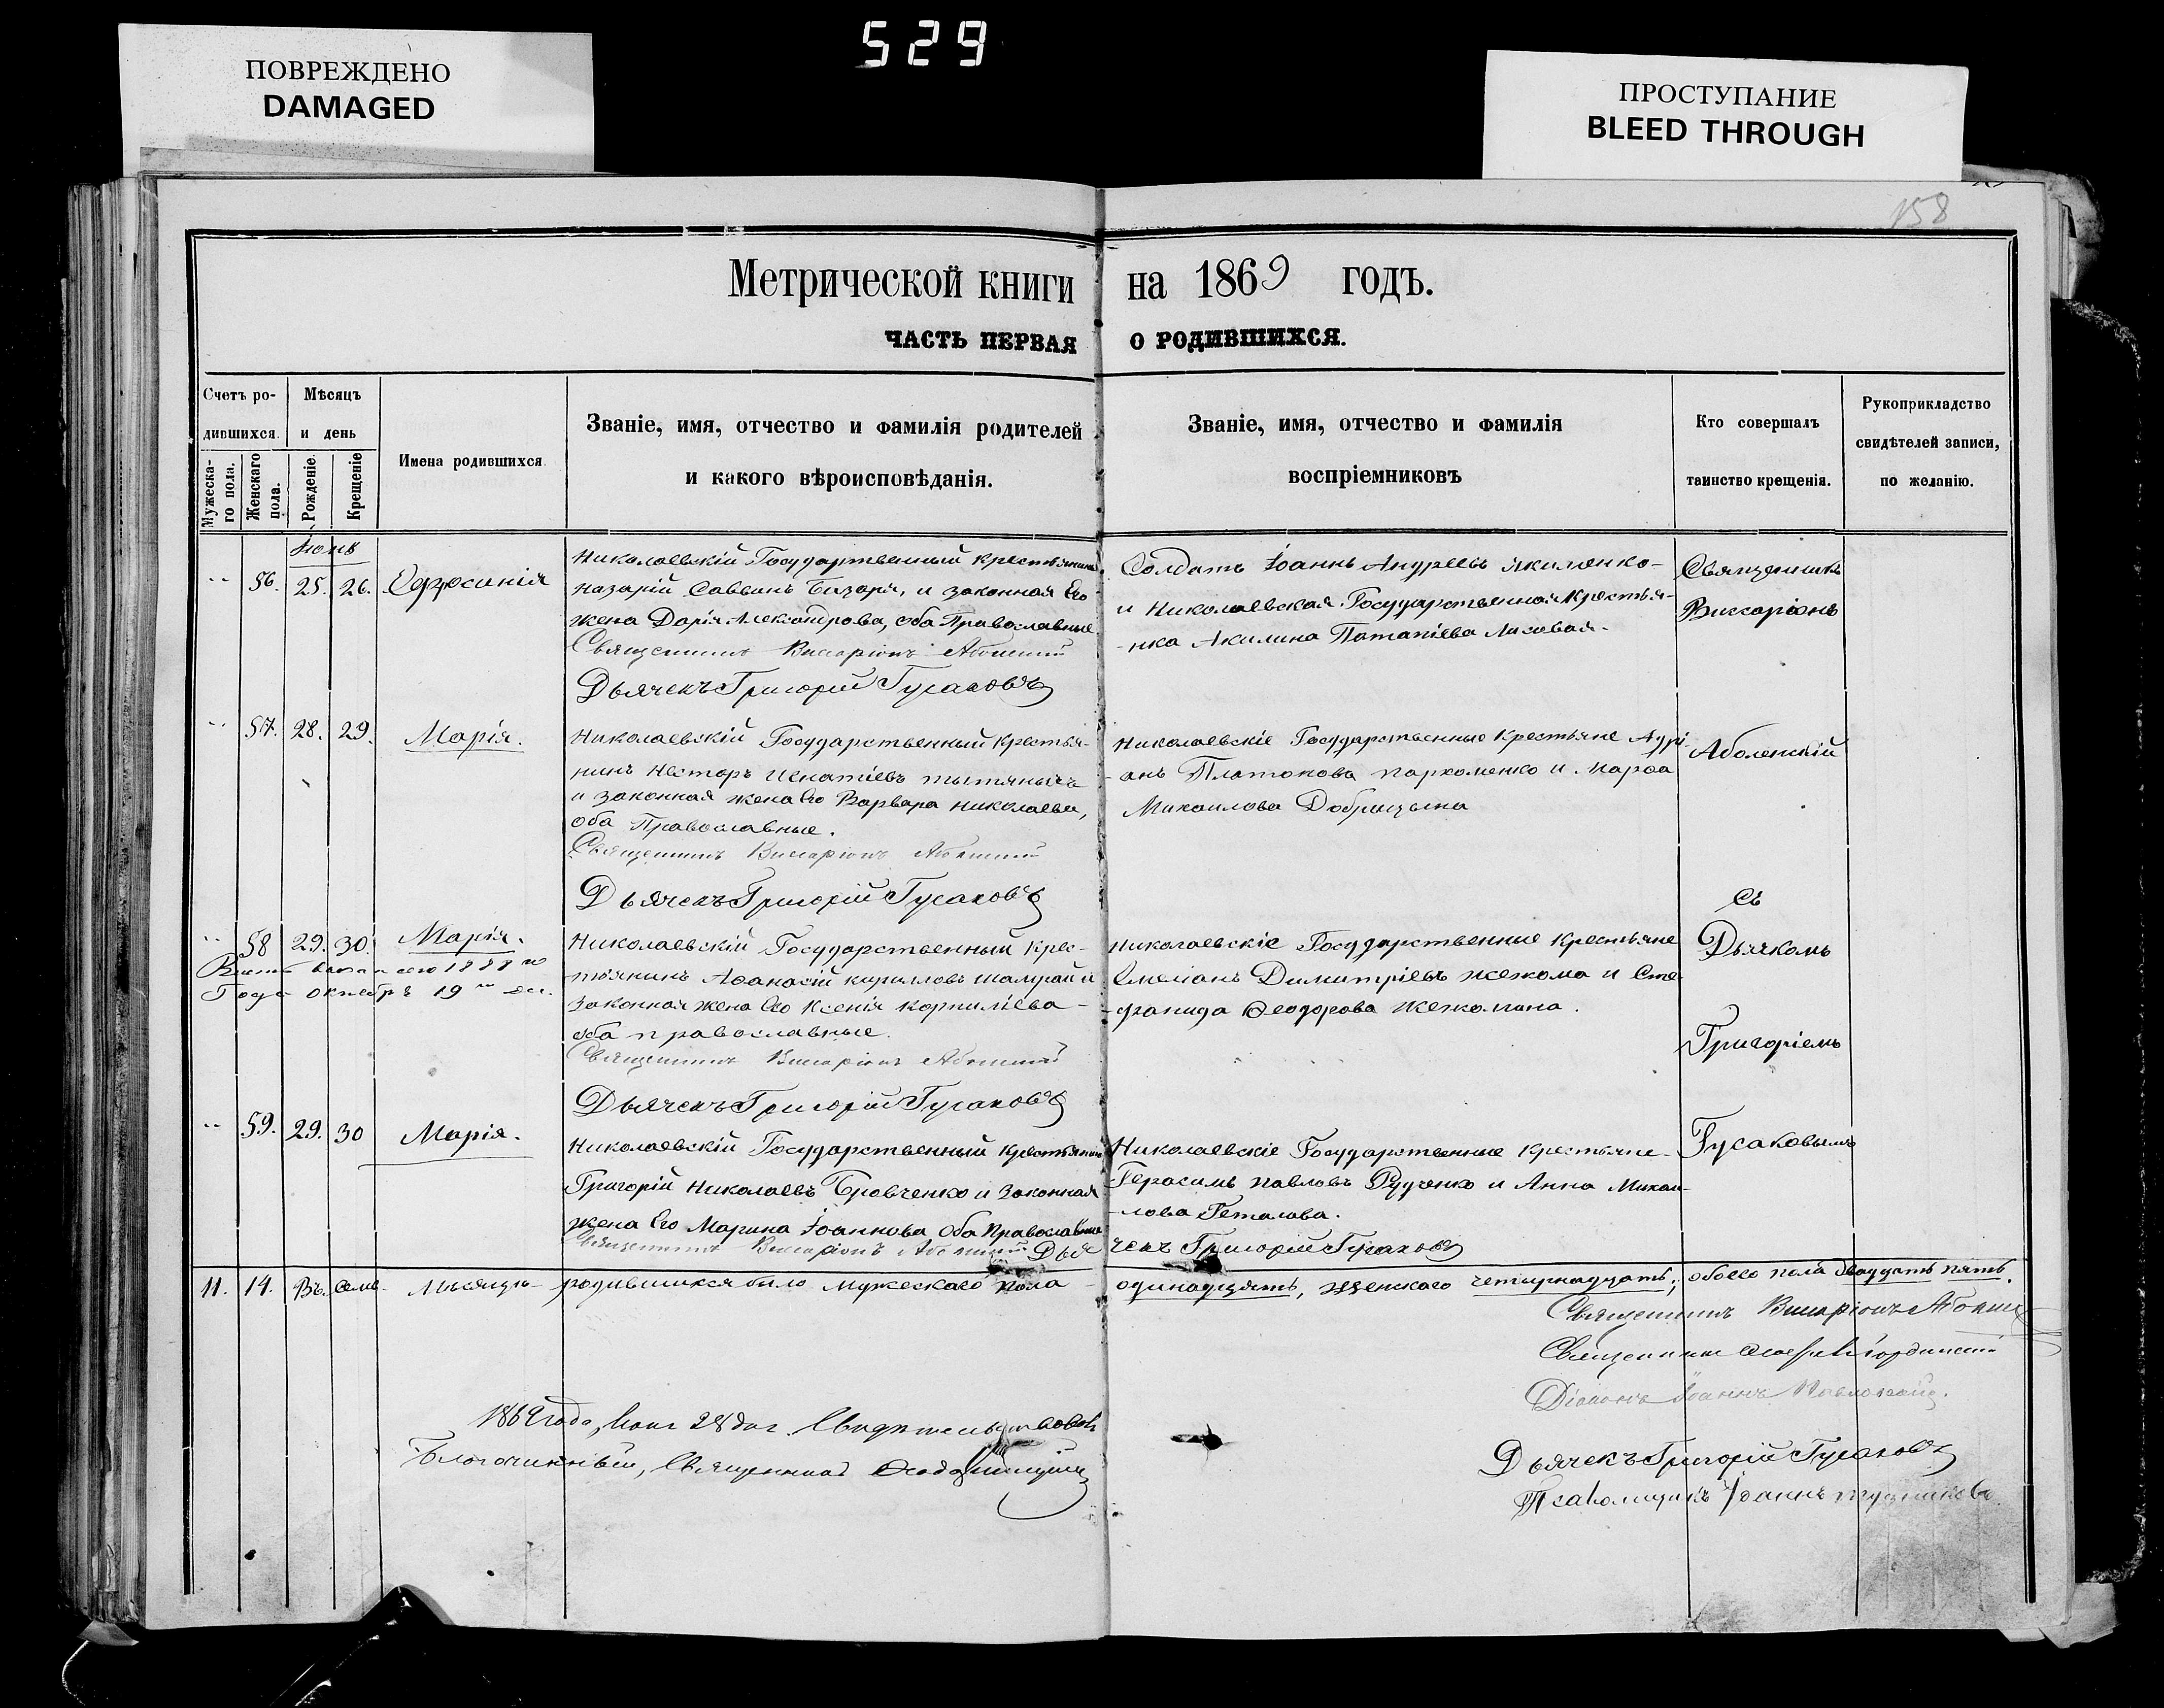 529
ПОВРЕЖДЕНО
DAMAGED
ПРОСТУПАНИЕ
BLEED THROUGH
158
Метрической книги на 1869 годъ.
ЧАСТЬ ПЕРВАЯ О РОДИВШИХСЯ.
Счетъ ро-
дившихся.
Мужеска-
го пола.
Женскаго
пола.
Мѣсяцъ
и день
Рожденіе.
Крещеніе
Имена родившихся.
Званіе, имя, отчество и фамилія родителей
и какого вѣроисповѣданія.
Званіе, имя, отчество и фамилія
воспріемниковъ
Кто совершалъ
таинство крещенія.
Рукоприкладство
свидѣтелей записи,
по желанію.
56. 25. 26. Ефросинія
Николаевскій Государственный крестьянинъ
Назарій Саввинъ и законная Его
жена Дарія Александрова, оба Православные.
Священникъ Виссаріонъ
Дьячекъ Григорій Гусаковъ
Солдатъ Іоаннъ Андреевъ Якименко-
и Николаевская Государственная Крестья-
-нка Акилина Потапіева
Священникъ
Виссаріонъ
57. 28. 29. Марія.
Николаевскій Государственный крестья-
нинъ Несторъ Игнатіевъ
и законная жена Его Варвара Николаева,
оба Православные.
Священникъ Виссаріонъ
Дьячекъ Григорій Гусаковъ
Николаевскіе Государственные Крестьяне Адрі-
-анъ Платоновъ Пархоменко и Марѳа
Михаилова Добрицына
Аболенскій
58 29. 30. Марія.
Николаевскій Государственный Крес-
тьянинъ Аѳанасій Кирилловъ Шамрай и
законная жена Его Ксенія Корнилієва-
оба православные.
Священникъ Виссаріонъ
Дьячекъ Григорій Гусаковъ
Николаевскіе Государственные Крестьяне
Емеліанъ Димитріевъ и Сте-
-фанида Ѳеодорова
Съ
Дьячкомъ
Григоріемъ
59. 29. 30 Марія.
Николаевскій Государственный крестьянинъ
Григорій Николаевъ Бровченко и законная
жена Его Марина Іоаннова Оба Православные
Священникъ Виссаріонъ Дья
Николаевскіе Государственные Крестьяне-
Герасимъ Павловъ Рудченко и Анна Михаи-
-лова
чекъ Григорій Гусаковъ
Гусаковымъ
11. 14. Въ семъ Мѣсяцѣ родившихся было Мужескаго пола одинадцять, Женскаго четырнадцать, обоего пола двадцать пять.
Священникъ Виссаріонъ
Священникъ
Діаконъ Іоаннъ
Дьячекъ Григорій Гусаковъ
Іоаннъ
1869 года, 28 дня.
Благочинный, Священникъ